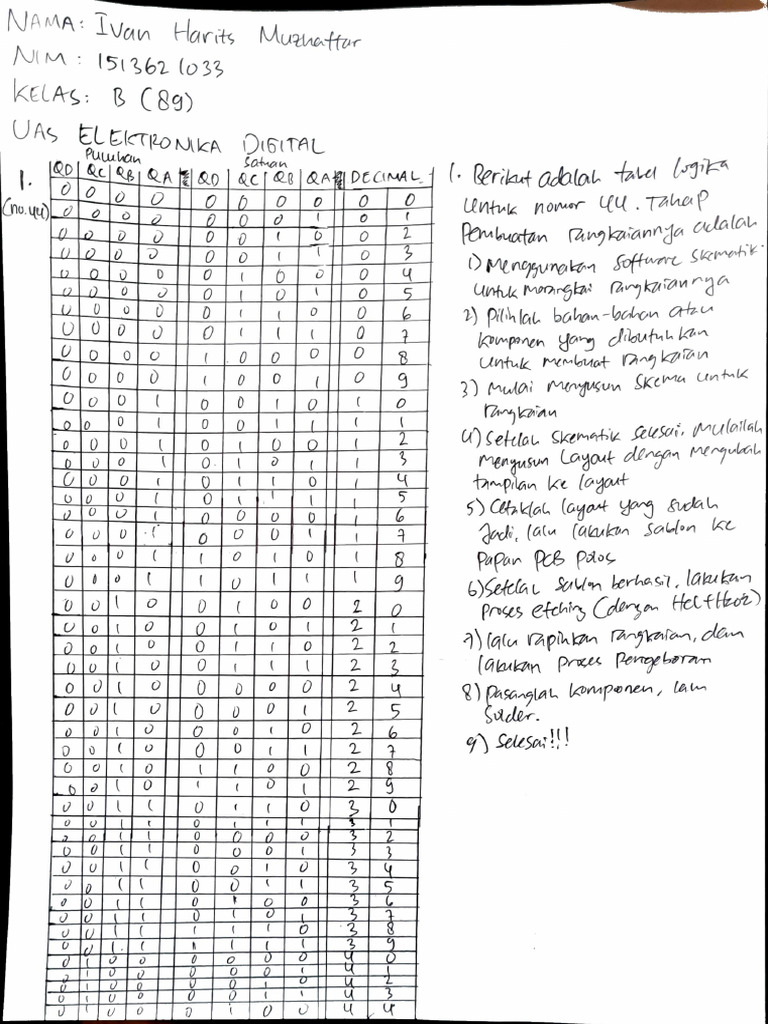 NAMA: Ivan Harits Muzhaffar
NIM : 1513621033
KELAS: B (89)
UAS ELEKTRONIKA DIGITAL
Puluhan Satuan
1. QD QC QB QA QD QC QB QA DECIMAL
(no.44) 0 0 0 0 0 0 0 0 0 0
0 0 0 0 0 0 0 1 0 1
0 0 0 0 0 0 1 0 0 2
0 0 0 0 0 0 1 1 0 3
0 0 0 0 0 1 0 0 0 4
0 0 0 0 0 1 0 1 0 5
0 0 0 0 0 1 1 0 0 6
0 0 0 0 0 1 1 1 0 7
0 0 0 0 1 0 0 0 0 8
0 0 0 0 1 0 0 1 0 9
0 0 0 1 0 0 1 0 1 0
0 0 0 1 0 0 1 1 1 1
0 0 0 1 0 1 0 0 1 2
0 0 0 1 0 1 0 1 1 3
0 0 0 1 0 1 1 0 1 4
0 0 0 1 0 1 1 1 1 5
0 0 0 1 0 0 0 0 1 6
0 0 0 1 0 0 0 1 1 7
0 0 0 1 1 0 1 0 1 8
0 0 0 1 1 0 1 1 1 9
0 0 1 0 0 1 0 0 2 0
0 0 1 0 0 1 0 1 2 1
0 0 1 0 0 1 1 0 2 2
0 0 1 0 0 1 1 1 2 3
0 0 1 0 0 0 0 0 2 4
0 0 1 0 0 0 0 1 2 5
0 0 1 0 0 0 1 0 2 6
0 0 1 0 0 0 1 1 2 7
0 0 1 0 1 1 0 0 2 8
0 0 1 0 1 1 0 1 2 9
0 0 1 1 0 1 1 0 3 0
0 0 1 1 0 1 1 1 3 1
0 0 1 1 0 0 0 0 3 2
0 0 1 1 0 0 0 1 3 3
0 0 1 1 0 0 1 0 3 4
0 0 1 1 0 0 1 1 3 5
0 0 1 1 0 1 0 0 3 6
0 0 1 1 0 1 0 1 3 7
0 0 1 1 1 1 1 0 3 8
0 0 1 1 1 1 1 1 3 9
0 1 0 0 0 0 0 0 4 0
0 1 0 0 0 0 0 1 4 1
0 1 0 0 0 0 1 0 4 2
0 1 0 0 0 0 1 1 4 3
0 1 0 0 0 1 0 0 4 4
1. Berikut adalah tabel logika
untuk nomor 44. Tahap
Pembuatan rangkaiannya adalah
1) Menggunakan Software skematik
untuk merangkai rangkaiannya
2) Pilihlah bahan-bahan atau
komponen yang dibutuhkan
untuk membuat rangkaian
3) Mulai menyusun skema untuk
rangkaian
4) Setelah skematik selesai, mulailah
menyusun Layout dengan mengubah
tampilan ke layout
5) Cetaklah layout yang sudah
Jadi, lalu lakukan sablon ke
Papan PCB Polos
6) Setelah sablon berhasil, lakukan
Proses etching (dengan HCl + H2O2)
7) lalu rapihkan rangkaian, dan
lakukan Proses Pengeboran
8) Pasanglah komponen, lalu
Solder.
9) Selesai!!!